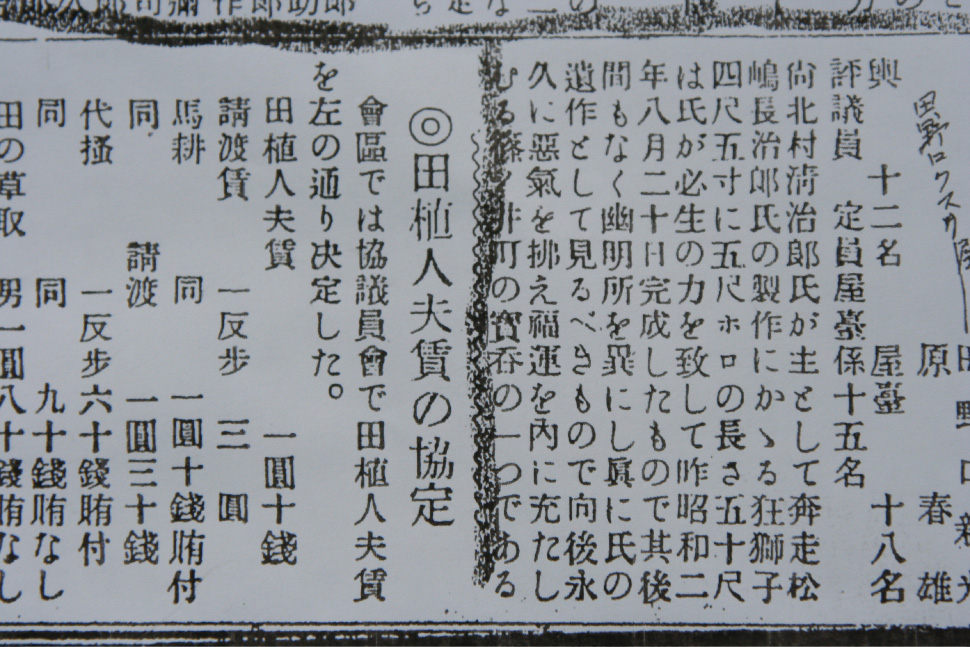 田野口
原　　春雄
與　十二名　屋臺　十八名
評議員　定員屋臺係十五名
尙北村淸治郎氏が主として奔走松
嶋長治郎氏の製作にかゝる狂獅子
四尺五寸に五尺ホロの長さ五十尺
は氏が必生の力を致して昨昭和二
年八月二十日完成したもので其後
間もなく幽明所を異にし眞に氏の
遺作として見るべきもので向後永
久に惡氣を拂え福運を內に充たし
むる篠ノ井町の寶吞の一つである
◎田植人夫賃の協定
會區では協議員會で田植人夫賃
を左の通り決定した。
田植人夫賃　一圓十錢
請渡賃　一反步　三圓
馬耕　同　一圓十錢賄付
同　請渡　一圓三十錢
代搔　一反步六十錢賄付
同　同　九十錢賄なし
田の草取　男一圓八十錢賄なし